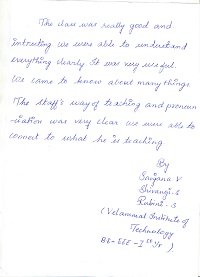 The class was really good and
intresting we were able to understand
everything clearly. It was very useful.
We came to know about many things
The staff's way of teaching and pronun
-ciation was very clear. we were able to
connect to what he is teaching
By
Sanjana V
Shivangi. S
Rubini. S
(Velammal Institute of
Technology
BE-EEE-I st Yr ).